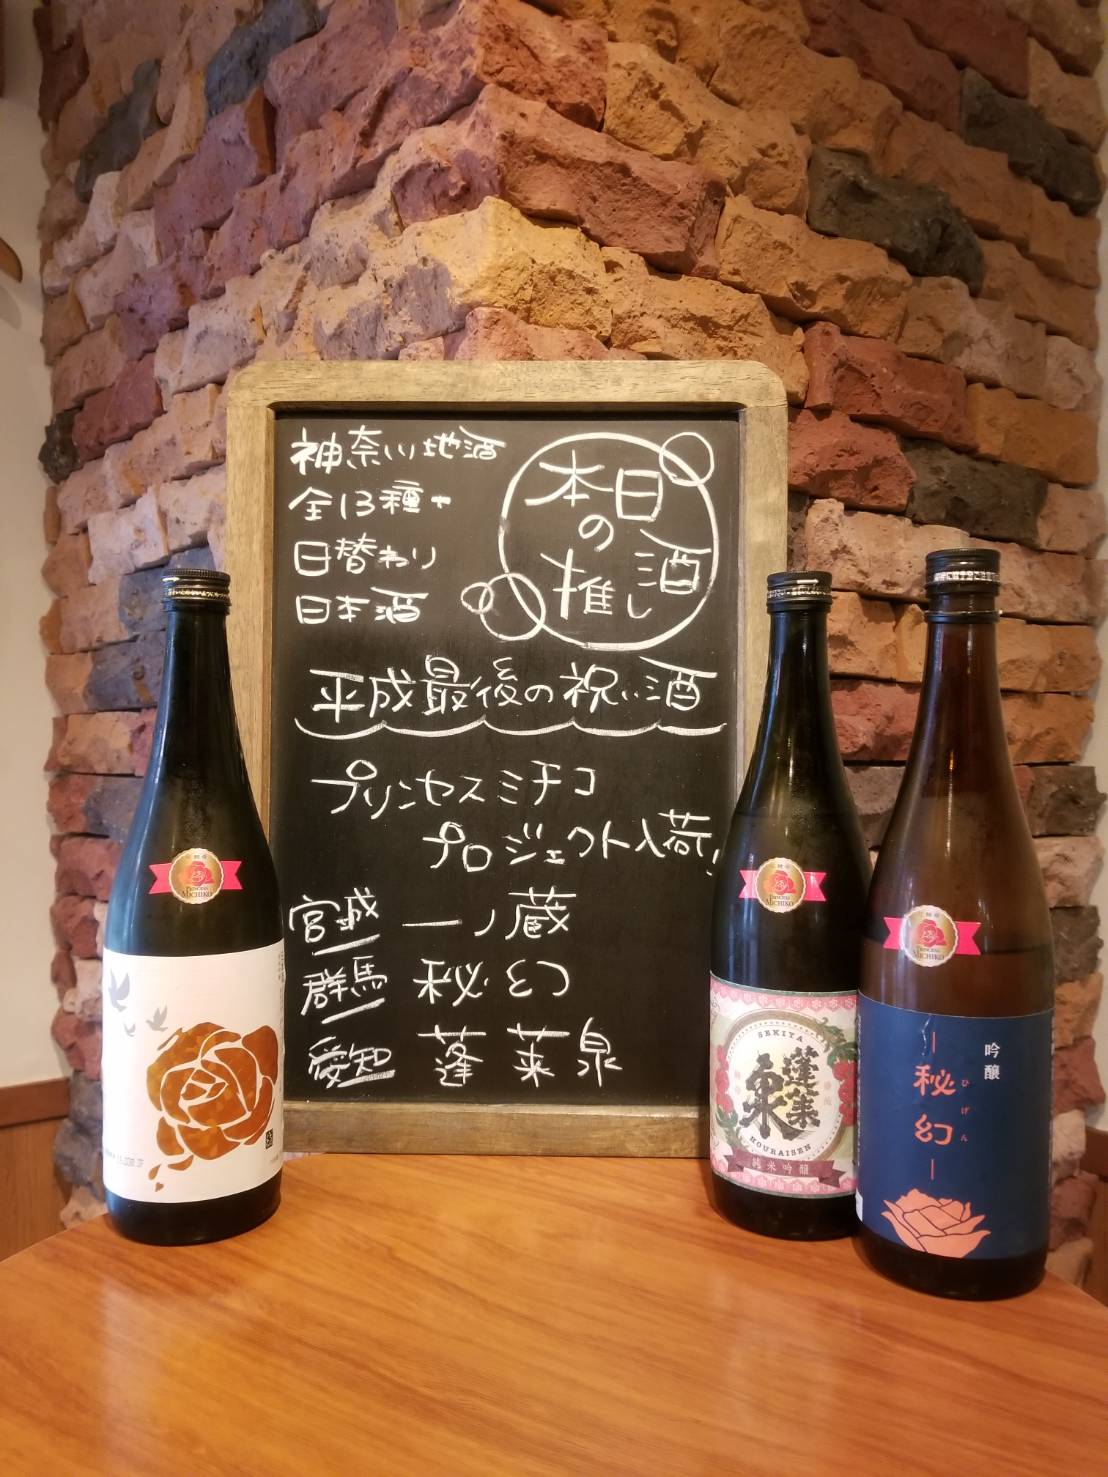 神奈川地酒
全13種+
日替わり
日本酒
本日
の
推し
酒
平成最後の祝い酒
プリンセスミチコ
プロジェクト入荷!
宮城 一ノ蔵
群馬 秘幻
愛知 蓬莱泉
PRINCESS
MICHIKO
PRINCESS
MICHIKO
SEKIYA
蓬莱
泉
HOURAISEN
純米吟醸
PRINCESS
MICHIKO
吟醸
秘幻
ひげん